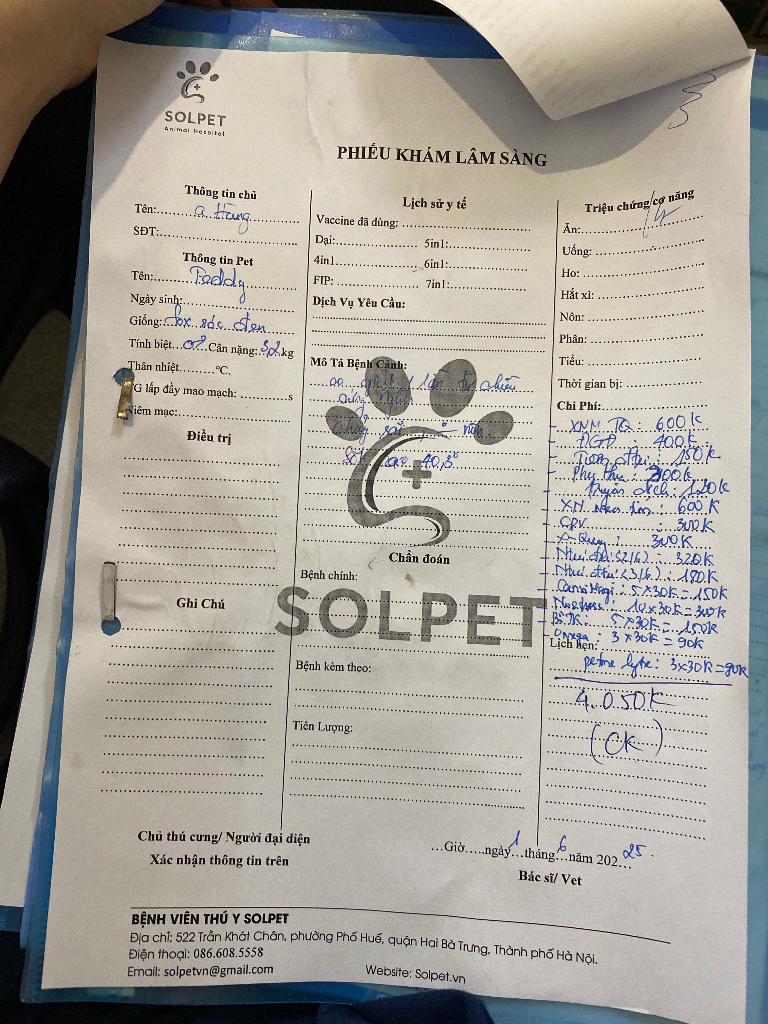 SOLPET
Animal Hospital
PHIẾU KHÁM LÂM SÀNG
Thông tin chủ
Tên: a Hùng
SĐT:
Thông tin Pet
Tên: Teddy
Ngày sinh:
Giống: fox sóc đen
Tính biệt ♂ Cân nặng: 3,2 kg
Thân nhiệt °C.
TG lấp đầy mao mạch: s
Niêm mạc:
Điều trị
Ghi Chú
Lịch sử y tế
Vaccine đã dùng:
Dại: 5in1:
4in1 6in1:
FIP: 7in1:
Dịch Vụ Yêu Cầu:
Mô Tả Bệnh Cảnh:
lần từ chiều
Sốt cao 40,3°
Chẩn đoán
Bệnh chính:
SOLPET
Bệnh kèm theo:
Tiên Lượng:
Triệu chứng/cơ năng
Ăn:
Uống:
Ho:
Hắt xì:
Nôn:
Phân:
Tiểu:
Thời gian bị:
Chi Phí:
- XNM TQ: 600K
- ĐGĐ: 400K
- : 150K
- : 300K
- truyền dịch: 120K
- XN : 600K
- CPV: 300K
- X-Quang: 300K
- (2/6): 320K
- (3/6): 180K
- : 5x30K=150K
- : 10x30K=300K
- : 5x30K=150K
- Omega: 3x30K=90K
Lịch hẹn:
lyte: 3x30K=90K
4.050K
(CK)
Chủ thú cưng/ Người đại diện
Xác nhận thông tin trên
…Giờ…..ngày 1 tháng 6 năm 2025
Bác sĩ/ Vet
BỆNH VIÊN THÚ Y SOLPET
Địa chỉ: 522 Trần Khát Chân, phường Phố Huế, quận Hai Bà Trưng, Thành phố Hà Nội.
Điện thoại: 086.608.5558
Email: solpetvn@gmail.com Website: Solpet.vn